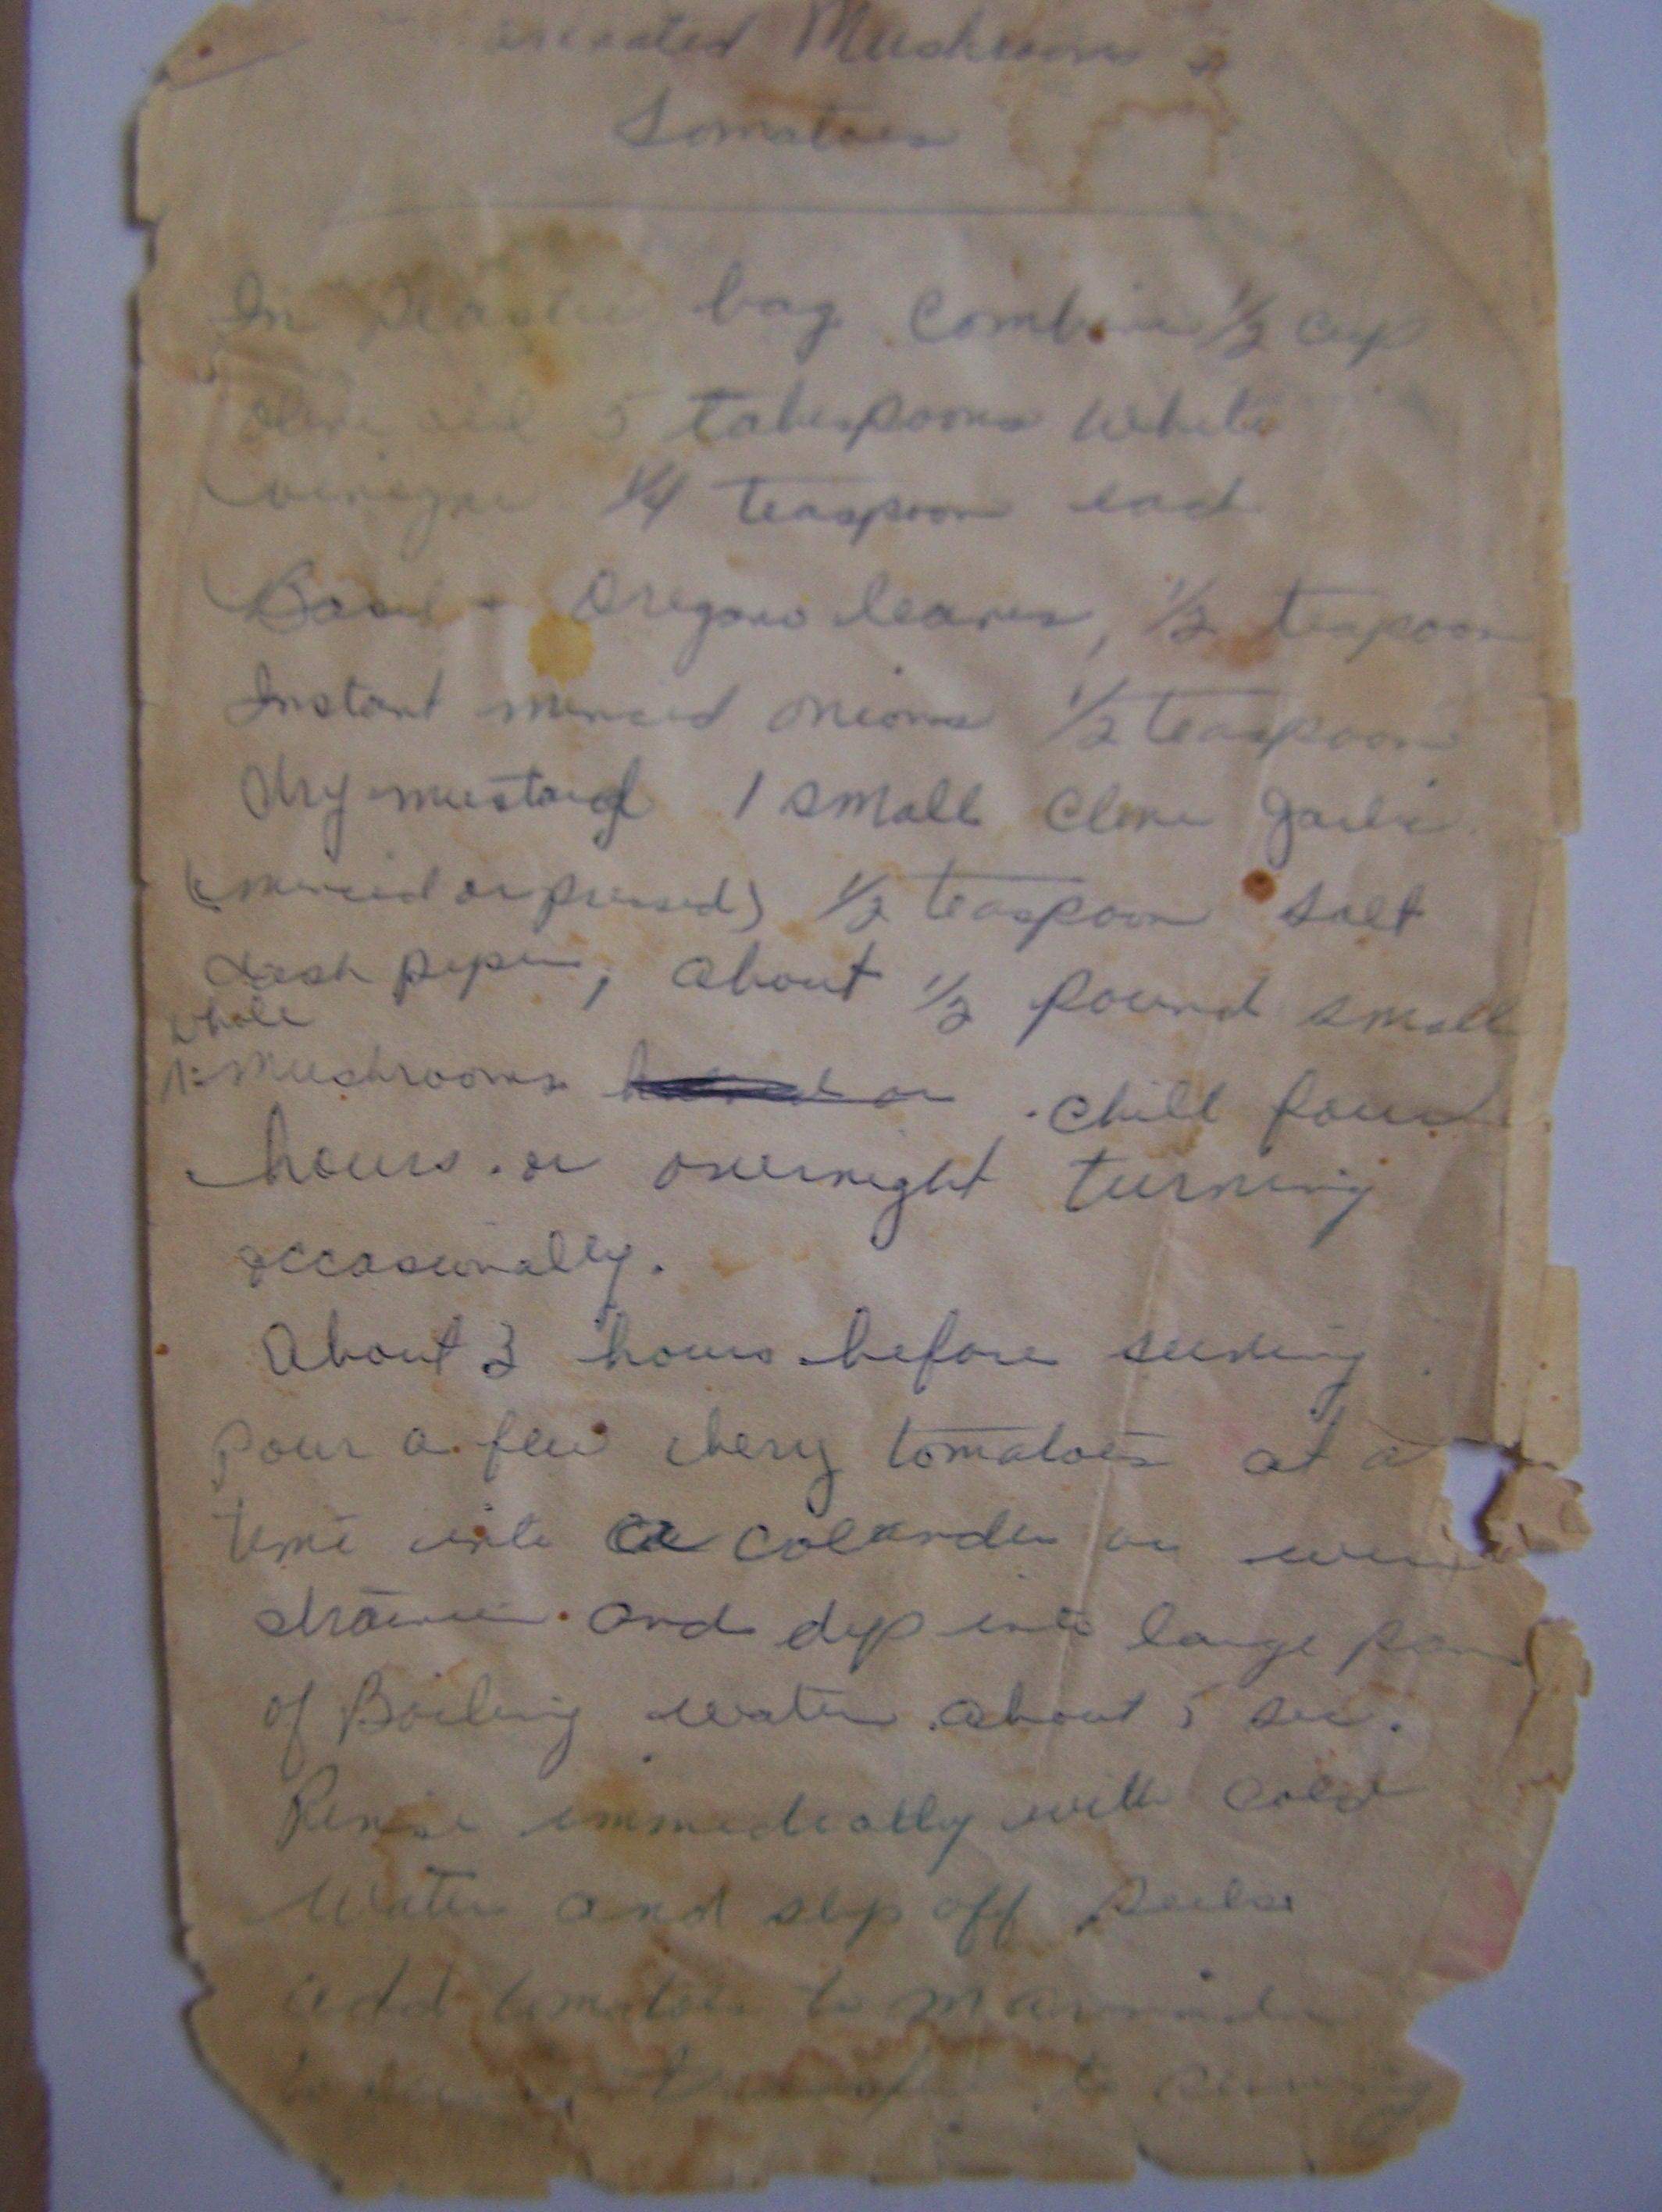 Mushrooms &
Tomatoes
In plastic bag combine 1/2 cup
olive oil 5 tabespoons white
vinegar 1/4 teaspoon each
Basil + Oregano leaves, 1/2 teaspoon
Instant minced onions 1/2 teaspoon
dry mustard 1 small clove garlic
(minced or pressed) 1/2 teaspoon salt
dash peper, about 1/2 pound small
whole
mushrooms or . chill four
hours. or overnight turning
occasionally.
About 3 hours before serving
pour a few chery tomatoes at a
time into a colander or wire
strainer. and dip into large pan
of Boiling water about 5 sec.
Rinse immediatly with cold
Water and slip off Peels
add tomatoes to marinade
to serve, transfer to serving